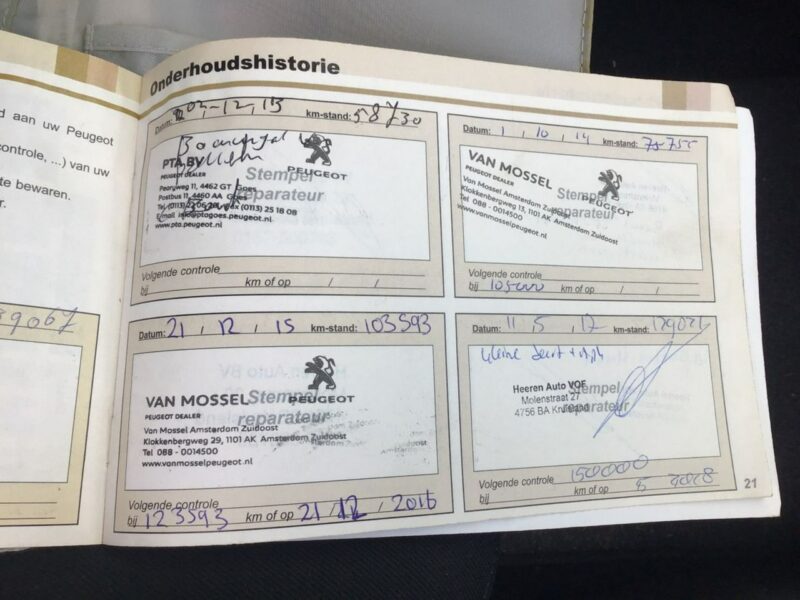 d aan uw Peugeot
controle, ...) van uw
te bewaren.
r.
39067
Onderhoudshistorie
Datum: 03-12, 13 km-stand: 58730
PTA BV
PEUGEOT DEALER
PEUGEOT
Stempel
reparateur
Pearyweg 11, 4462 GT Goes
Postbus 11, 4460 AA Goes
Tel. (0113) 22 06 20 Fax (0113) 25 18 08
E-mail info@ptagoes.peugeot.nl
www.pta.peugeot.nl
Volgende controle
bij km of op / /
Datum: 1, 10, 14 km-stand: 75755
VAN MOSSEL
PEUGEOT DEALER
PEUGEOT
Stempel
reparateur
Van Mossel Amsterdam Zuidoost
Klokkenbergweg 13, 1101 AK Amsterdam Zuidoost
Tel 088 - 0014500
www.vanmosselpeugeot.nl
Volgende controle
bij 105000 km of op / /
Datum: 21, 12, 15 km-stand: 103593
VAN MOSSEL
PEUGEOT DEALER
PEUGEOT
Stempel
reparateur
Van Mossel Amsterdam Zuidoost
Klokkenbergweg 29, 1101 AK Amsterdam Zuidoost
Tel 088 - 0014500
www.vanmosselpeugeot.nl
Volgende controle
bij 123593 km of op 21 / 12 / 2016
Datum: 11, 5, 17 km-stand:
kleine beurt +
Heeren Auto VOF
Stempel
reparateur
Molenstraat 27
4756 BA Kruisland
Volgende controle 150000
bij km of op 5 2018
21